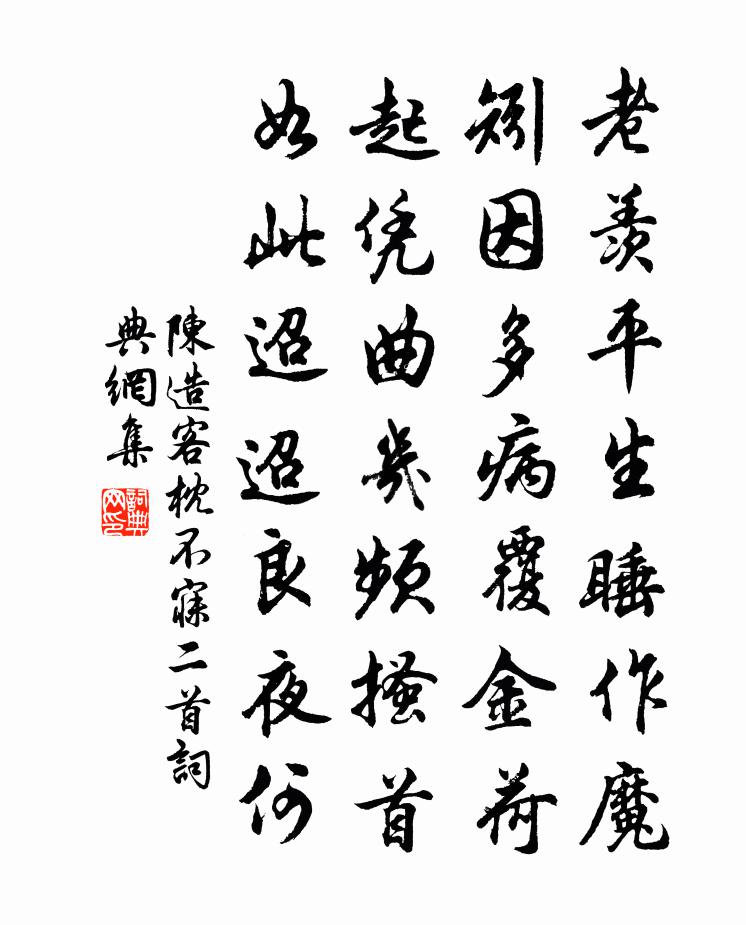 老羡平生睡作魔
矧因多病覆金荷
起凭曲几频搔首
如此迢迢良夜何
陳造客枕不寐二首詞
典網集
詞典
网印